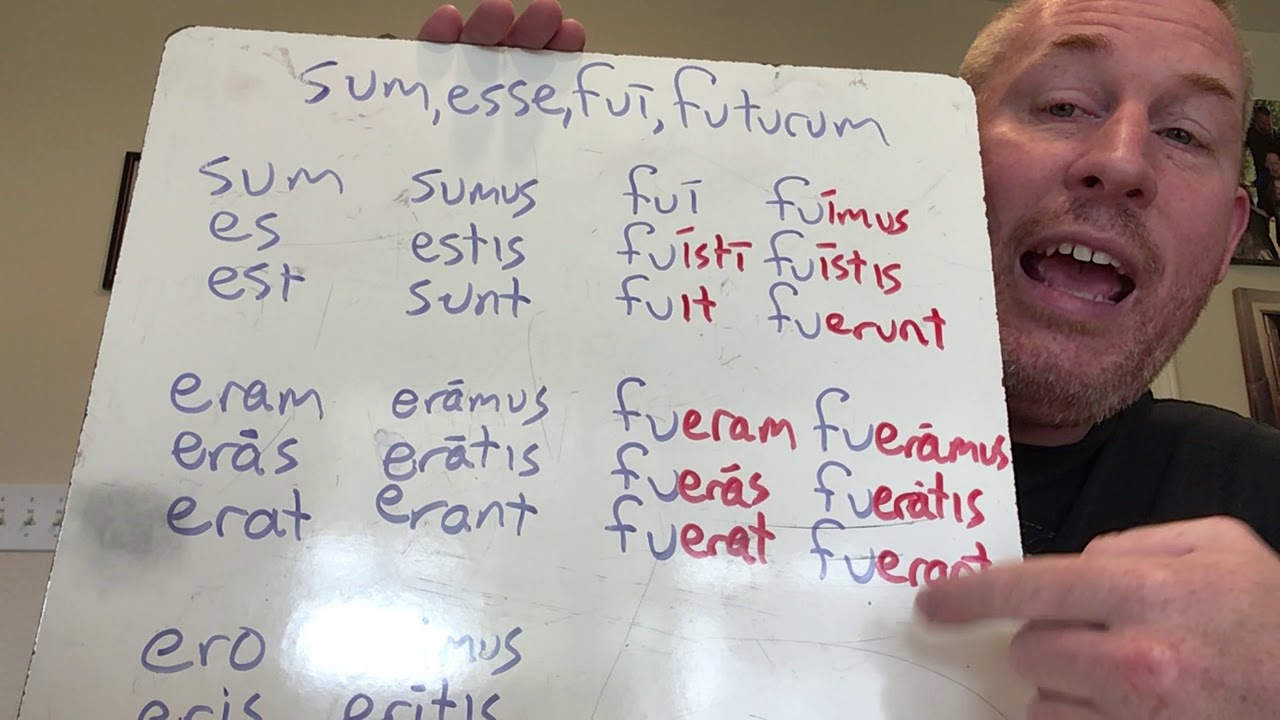 sum, esse, fuī, futurum
sum sumus fuī fuīmus
es estis fuīstī fuīstis
est sunt fuit fuerunt
eram erāmus fueram fuerāmus
erās erātis fuerās fuerātis
erat erant fuerat fuerant
ero
eris eritis